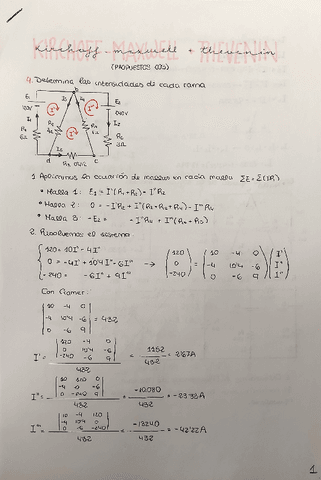 KIRCHOFF - MAXWELL + THEVENIN
4. Determina las intensidades de cada rama
E1
120V
I1
R1
6Ω
b
I'
I''
I'''
E2
240V
I2
R2
3Ω
a
c
1. Aplicamos la ecuación de mallas en cada malla ΣE = Σ(IR)
• Malla 1: E1 = I'(R1+R4) - I''R4
• Malla 2: 0 = -I'R4 + I''
• Malla 3: -E2 =
2. Resolvemos el sistema
120 = 10I' - 4I''
0 = -4I' + 10'4I'' - 6I'''
-240 = -6I'' + 9I'''
120 0 -240 = 10 -4 0 -4 10'4 -6 0 -6 9 I' I'' I'''
Con Cramer:
10 -4 0
-4 10'4 -6 = 432
0 -6 9
120 -4 0
0 10'4 -6
I' = -240 -6 9 / 432 = 1152 / 432 = 2'67A
10 120 0
-4 0 -6
I'' = 0 -240 9 / 432 = -10080 / 432 = -23'33A
10 -4 120
-4 10'4 0
I''' = 0 -6 -240 / 432 = -18240 / 432 = -42'22A
1